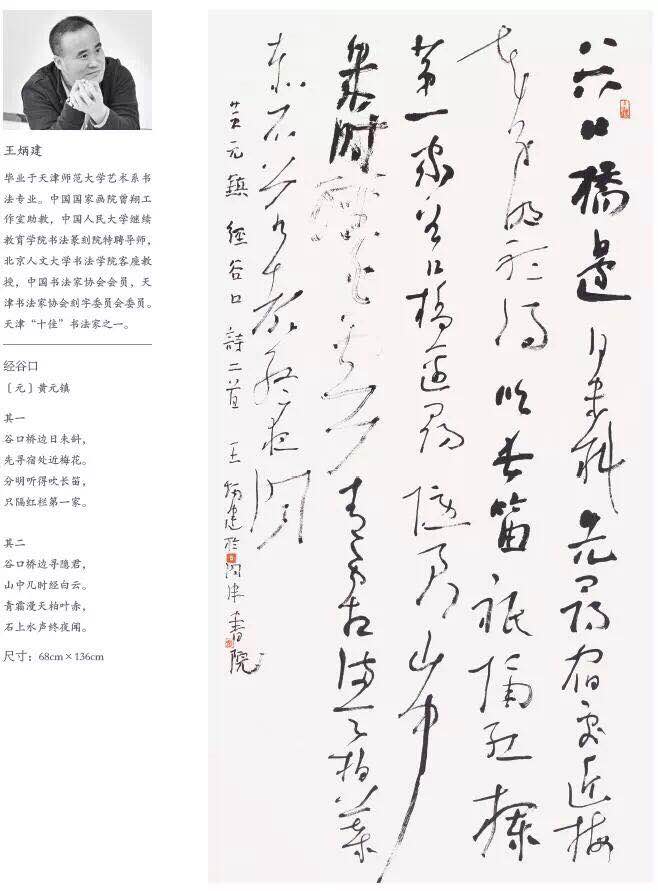 王炳建
毕业于天津师范大学艺术系书
法专业。中国国家画院曾翔工
作室助教，中国人民大学继续
教育学院书法篆刻院特聘导师，
北京人文大学书法学院客座教
授，中国书法家协会会员，天
津书法家协会刻字委员会委员。
天津“十佳”书法家之一。
经谷口
〔元〕黄元镇
其一
谷口桥边日未斜，
先寻宿处近梅花。
分明听得吹长笛，
只隔红栏第一家。
其二
谷口桥边寻隐君，
山中几时经白云。
青霜漫天柏叶赤，
石上水声终夜闻。
尺寸：68cm×136cm
谷口橋邊日未斜先尋宿處近梅
花分明聽得吹長笛祇隔紅欄
第一家谷口橋邊尋隱君山中
幾時經白雲青霜漫天柏葉
赤石上水聲終夜聞
黃元鎮 經谷口 詩二首 王炳建於問津書院